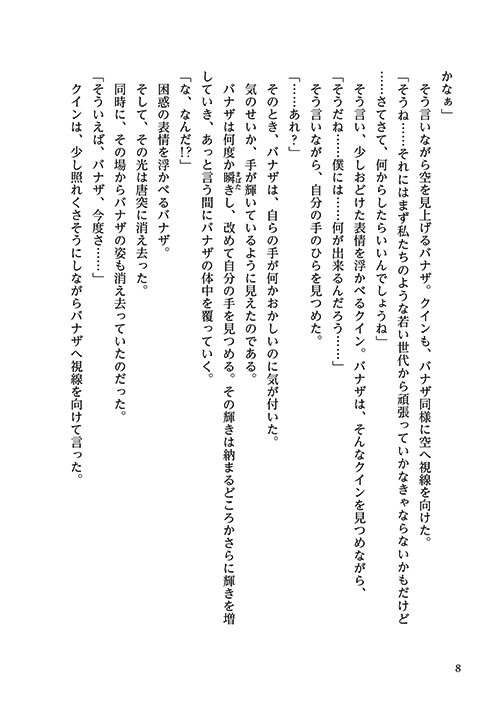 かなぁ」
　そう言いながら空を見上げるバナザ。クインも、バナザ同様に空へ視線を向けた。
「そうね……それにはまず私たちのような若い世代から頑張っていかなきゃならないかもだけど
……さてさて、何からしたらいいんでしょうね」
　そう言い、少しおどけた表情を浮かべるクイン。バナザは、そんなクインを見つめながら、
「そうだね……僕には……何が出来るんだろう……」
　そう言いながら、自分の手のひらを見つめた。
「……あれ？」
　そのとき、バナザは、自らの手が何かおかしいのに気が付いた。
　気のせいか、手が輝いているように見えたのである。
　バナザは何度か瞬きし、改めて自分の手を見つめる。その輝きは納まるどころかさらに輝きを増
していき、あっと言う間にバナザの体中を覆っていく。
「な、なんだ!?」
　困惑の表情を浮かべるバナザ。
　そして、その光は唐突に消え去った。
　同時に、その場からバナザの姿も消え去っていたのだった。
「そういえば、バナザ、今度さ……」
　クインは、少し照れくさそうにしながらバナザへ視線を向けて言った。
8